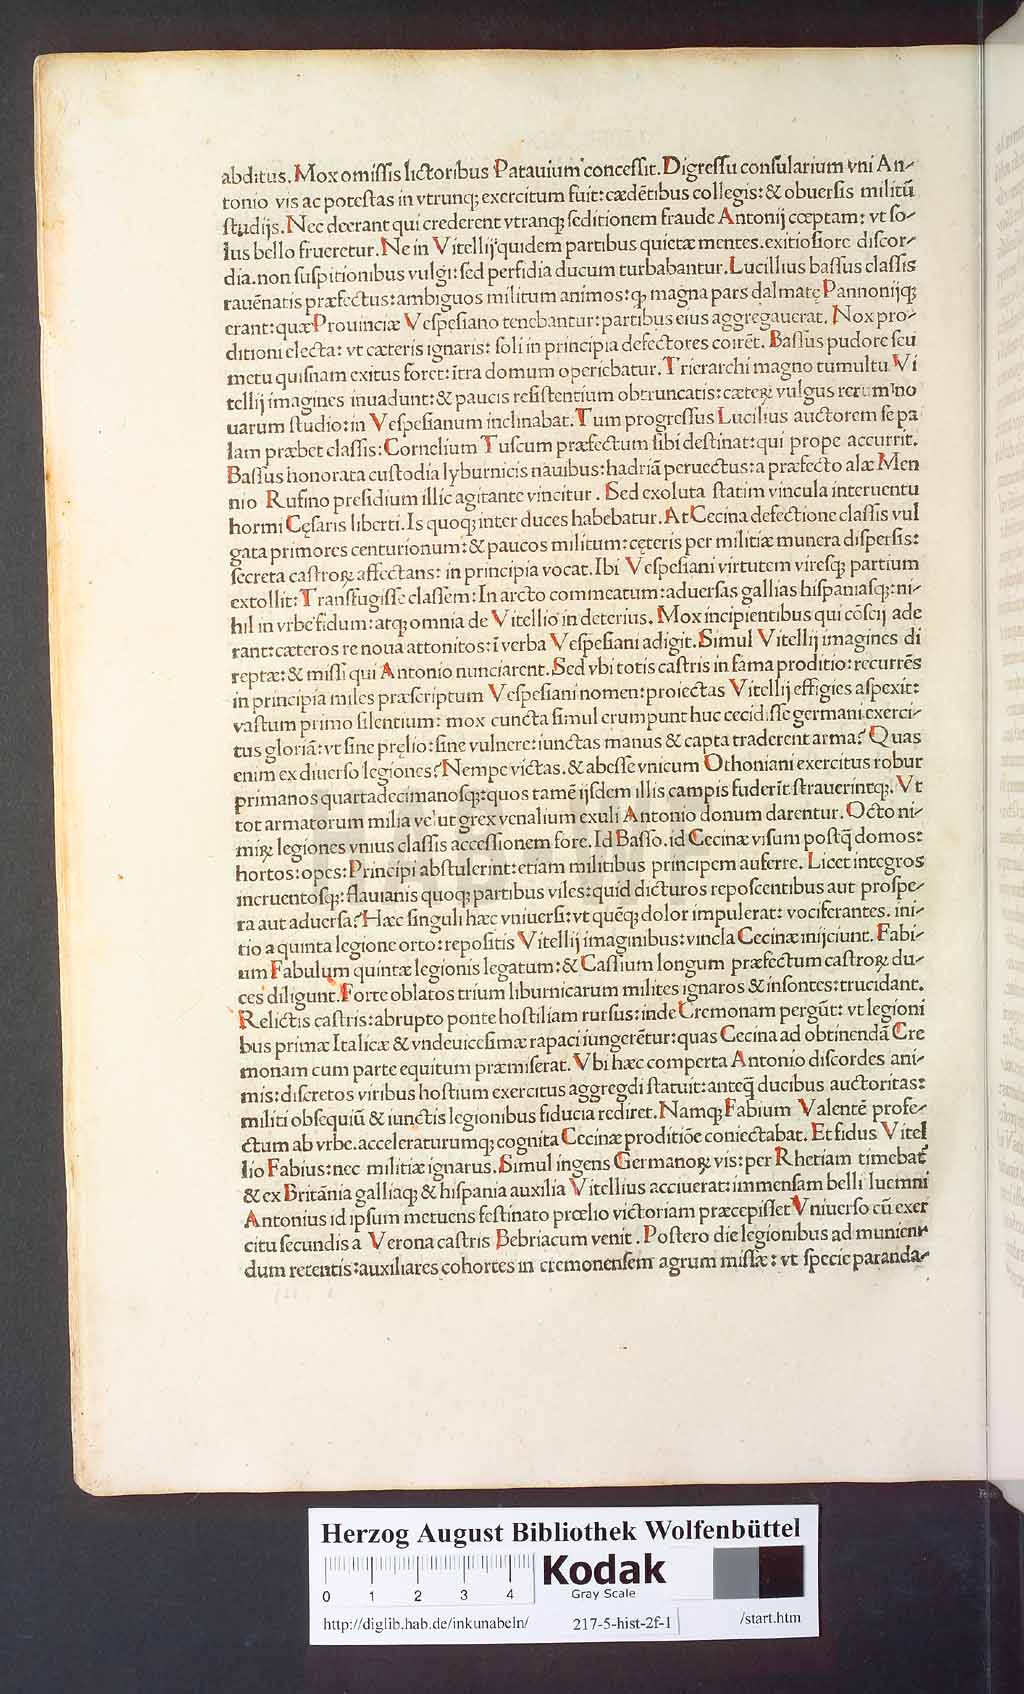 abditus. Mox omissis lictoribus Patauium concessit. Digressu consularium vni An-
tonio vis ac potestas in vtrunqꝫ exercitum fuit: cædētibus collegis: & obuersis militū
studijs. Nec deerant qui crederent vtranqꝫ seditionem fraude Antonij cœptam: vt so-
lus bello frueretur. Ne in Vitellij quidem partibus quietæ mentes. exitiosiore discor-
dia. non suspitionibus vulgi: sed perfidia ducum turbabantur. Lucillius bassus classis
rauēnatis præfectus: ambiguos militum animos: qꝫ magna pars dalmatę Pannonijqꝫ
erant: quæ Prouinciæ Vespesiano tenebantur: partibus eius aggregauerat. Nox pro-
ditioni electa: vt cæteris ignaris: soli in principia defectores coirēt. Bassus pudore seu
metu quisnam exitus foret: ītra domum operiebatur. Trierarchi magno tumultu Vi
tellij imagines inuadunt: & paucis resistentium obtruncatis: cæteꝝ vulgus rerum no
uarum studio: in Vespesianum inclinabat. Tum progressus Lucilius auctorem se pa
lam præbet classis: Cornelium Tuscum præfectum sibi destinat: qui prope accurrit.
Bassus honorata custodia lyburnicis nauibus: hadriā peruectus: a præfecto alæ Men
nio Rufino presidium illic agitante vincitur. Sed exoluta statim vincula interuentu
hormi Cęsaris liberti. Is quoqꝫ inter duces habebatur. At Cecina defectione classis vul
gata primores centurionum: & paucos militum: cęteris per militiæ munera dispersis:
secreta castroꝝ affectans: in principia vocat. Ibi Vespesiani virtutem viresqꝫ partium
extollit: Transfugisse classem: In arcto commeatum: aduersas gallias hispaniasqꝫ: ni-
hil in vrbe fidum: atqꝫ omnia de Vitellio in deterius. Mox incipientibus qui cōscij ade
rant: cæteros re noua attonitos: ī verba Vespesiani adigit. Simul Vitellij imagines di
reptæ: & missi qui Antonio nunciarent. Sed vbi totis castris in fama proditio: recurrēs
in principia miles præscriptum Vespesiani nomen: proiectas Vitellij effigies aspexit:
vastum primo silentium: mox cuncta simul erumpunt huc cecidisse germani exerci-
tus gloriā: vt sine pręlio: sine vulnere: iunctas manus & capta traderent arma? Quas
enim ex diuerso legiones? Nempe victas. & abesse vnicum Othoniani exercitus robur
primanos quartadecimanosqꝫ: quos tamē ijsdem illis campis fuderīt strauerintqꝫ. Vt
tot armatorum milia velut grex venalium exuli Antonio donum darentur. Octo ni-
miꝝ legiones vnius classis accessionem fore. Id Basso. id Cecinæ visum postq̄ domos:
hortos: opes: Principi abstulerint: etiam militibus principem auferre. Licet integros
incruentosqꝫ: flauianis quoqꝫ partibus viles: quid dicturos reposcentibus aut prospe-
ra aut aduersa? Hæc singuli hæc vniuersi: vt quēqꝫ dolor impulerat: vociferantes. ini-
tio a quinta legione orto: repositis Vitellij imaginibus: vincla Cecinæ inijciunt. Fabi-
um Fabulum quintæ legionis legatum: & Cassium longum præfectum castroꝝ du-
ces diligunt. Forte oblatos trium liburnicarum milites ignaros & insontes: trucidant.
Relictis castris: abrupto ponte hostiliam rursus: inde Cremonam pergūt: vt legioni
bus primæ Italicæ & vndeuicesimæ rapaci iungerētur: quas Cecina ad obtinendā Cre
monam cum parte equitum præmiserat. Vbi hæc comperta Antonio discordes ani-
mis: discretos viribus hostium exercitus aggregdi statuit: anteq̄ ducibus auctoritas:
militi obsequiū & iunctis legionibus fiducia rediret. Namqꝫ Fabium Valentē profe-
ctum ab vrbe. acceleraturumqꝫ cognita Cecinæ proditiōe coniectabat. Et fidus Vitel
lio Fabius: nec militiæ ignarus. Simul ingens Germanoꝝ vis: per Rhetiam timebat
& ex Britānia galliaqꝫ & hispania auxilia Vitellius acciuerat: immensam belli luemni
Antonius id ipsum metuens festinato prœlio victoriam præcepisset Vniuerso cū exer
citu secundis a Verona castris Bebriacum venit. Postero die legionibus ad munien-
dum retentis: auxiliares cohortes in cremonensem agrum missæ: vt specie paranda-
Herzog August Bibliothek Wolfenbüttel
0 1 2 3 4
Kodak
Gray Scale
http://diglib.hab.de/inkunabeln/ 217-5-hist-2f-1 /start.htm